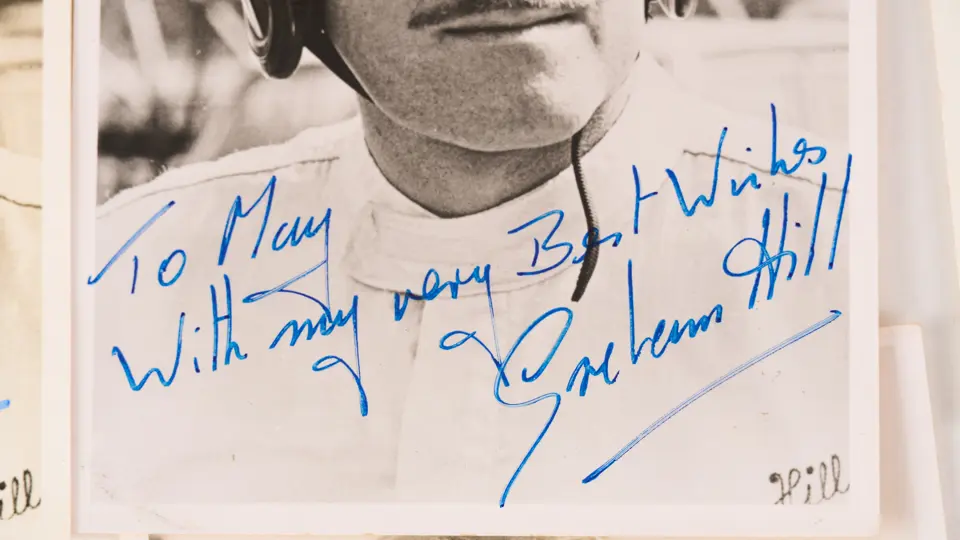 To May
With my very Best Wishes
Graham Hill
Hill
ill